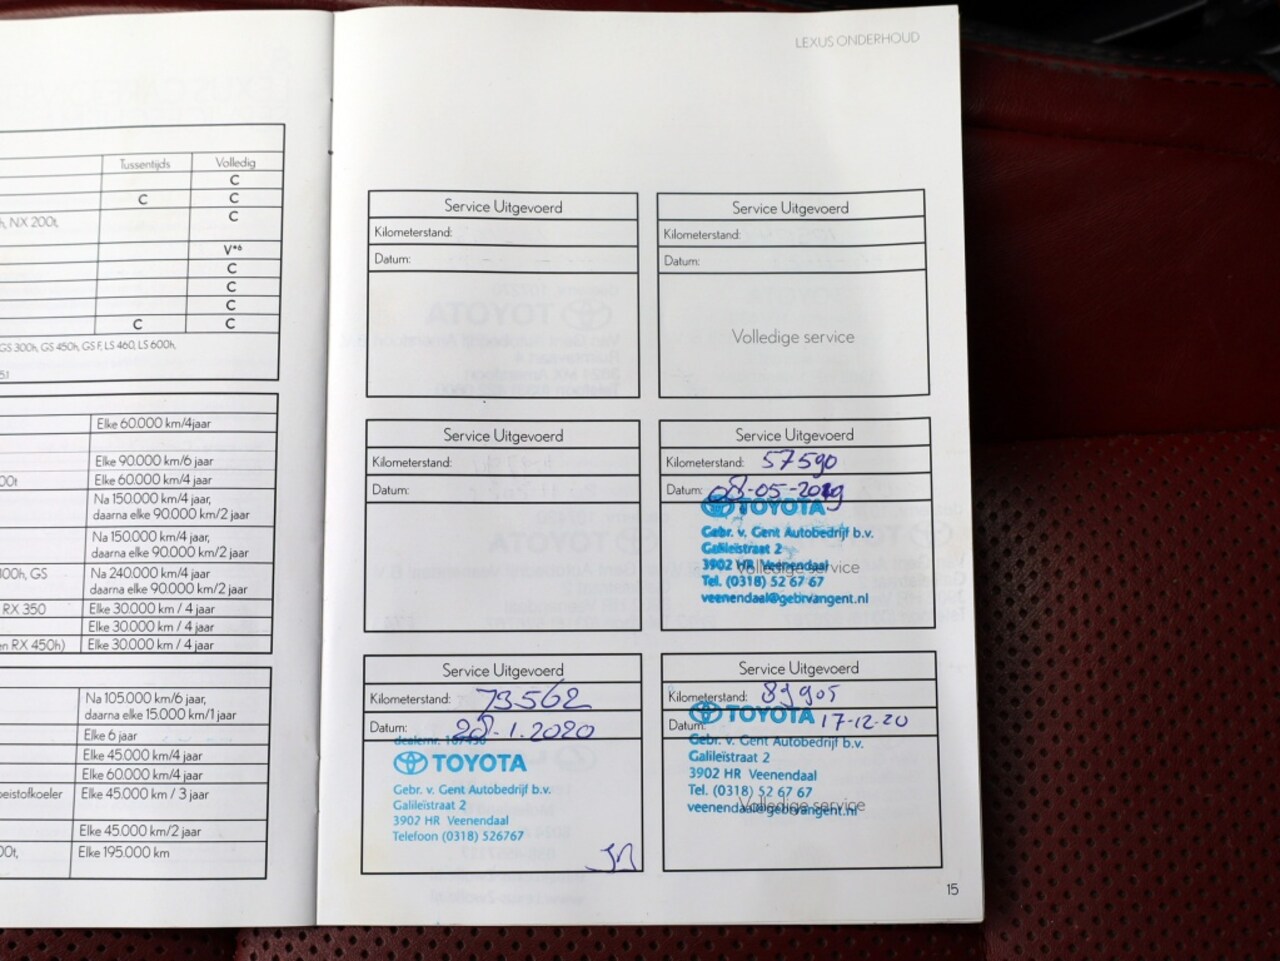 LEXUS ONDERHOUD
Tussentijds Volledig
C
C C
h, NX 200t, C
V*6
C
C
C
C C
GS 300h, GS 450h, GS F, LS 460, LS 600h,
Elke 60.000 km/4jaar
Elke 90.000 km/6 jaar
00t Elke 60.000 km/4 jaar
Na 150.000 km/4 jaar,
daarna elke 90.000 km/2 jaar
Na 150.000 km/4 jaar,
daarna elke 90.000 km/2 jaar
300h, GS Na 240.000 km/4 jaar
daarna elke 90.000 km/2 jaar
RX 350 Elke 30.000 km / 4 jaar
Elke 30.000 km / 4 jaar
en RX 450h) Elke 30.000 km / 4 jaar
Na 105.000 km/6 jaar,
daarna elke 15.000 km/1 jaar
Elke 6 jaar
Elke 45.000 km/4 jaar
Elke 60.000 km/4 jaar
oeistofkoeler Elke 45.000 km / 3 jaar
Elke 45.000 km/2 jaar
00t, Elke 195.000 km
Service Uitgevoerd
Kilometerstand:
Datum:
Service Uitgevoerd
Kilometerstand:
Datum:
Volledige service
Service Uitgevoerd
Kilometerstand:
Datum:
Service Uitgevoerd
Kilometerstand: 57590
Datum: 08-05-2019
TOYOTA
Gebr. v. Gent Autobedrijf b.v.
Galileïstraat 2
3902 HR Veenendaal
Volledige service
Tel. (0318) 52 67 67
veenendaal@gebrvangent.nl
Service Uitgevoerd
Kilometerstand: 73562
Datum: 28-1-2020
dealernr. 107430
TOYOTA
Gebr. v. Gent Autobedrijf b.v.
Galileïstraat 2
3902 HR Veenendaal
Telefoon (0318) 526767
Service Uitgevoerd
Kilometerstand: 89905
Datum: 17-12-20
TOYOTA
Gebr. v. Gent Autobedrijf b.v.
Galileïstraat 2
3902 HR Veenendaal
Tel. (0318) 52 67 67
veenendaal@gebrvangent.nl
Volledige service
15